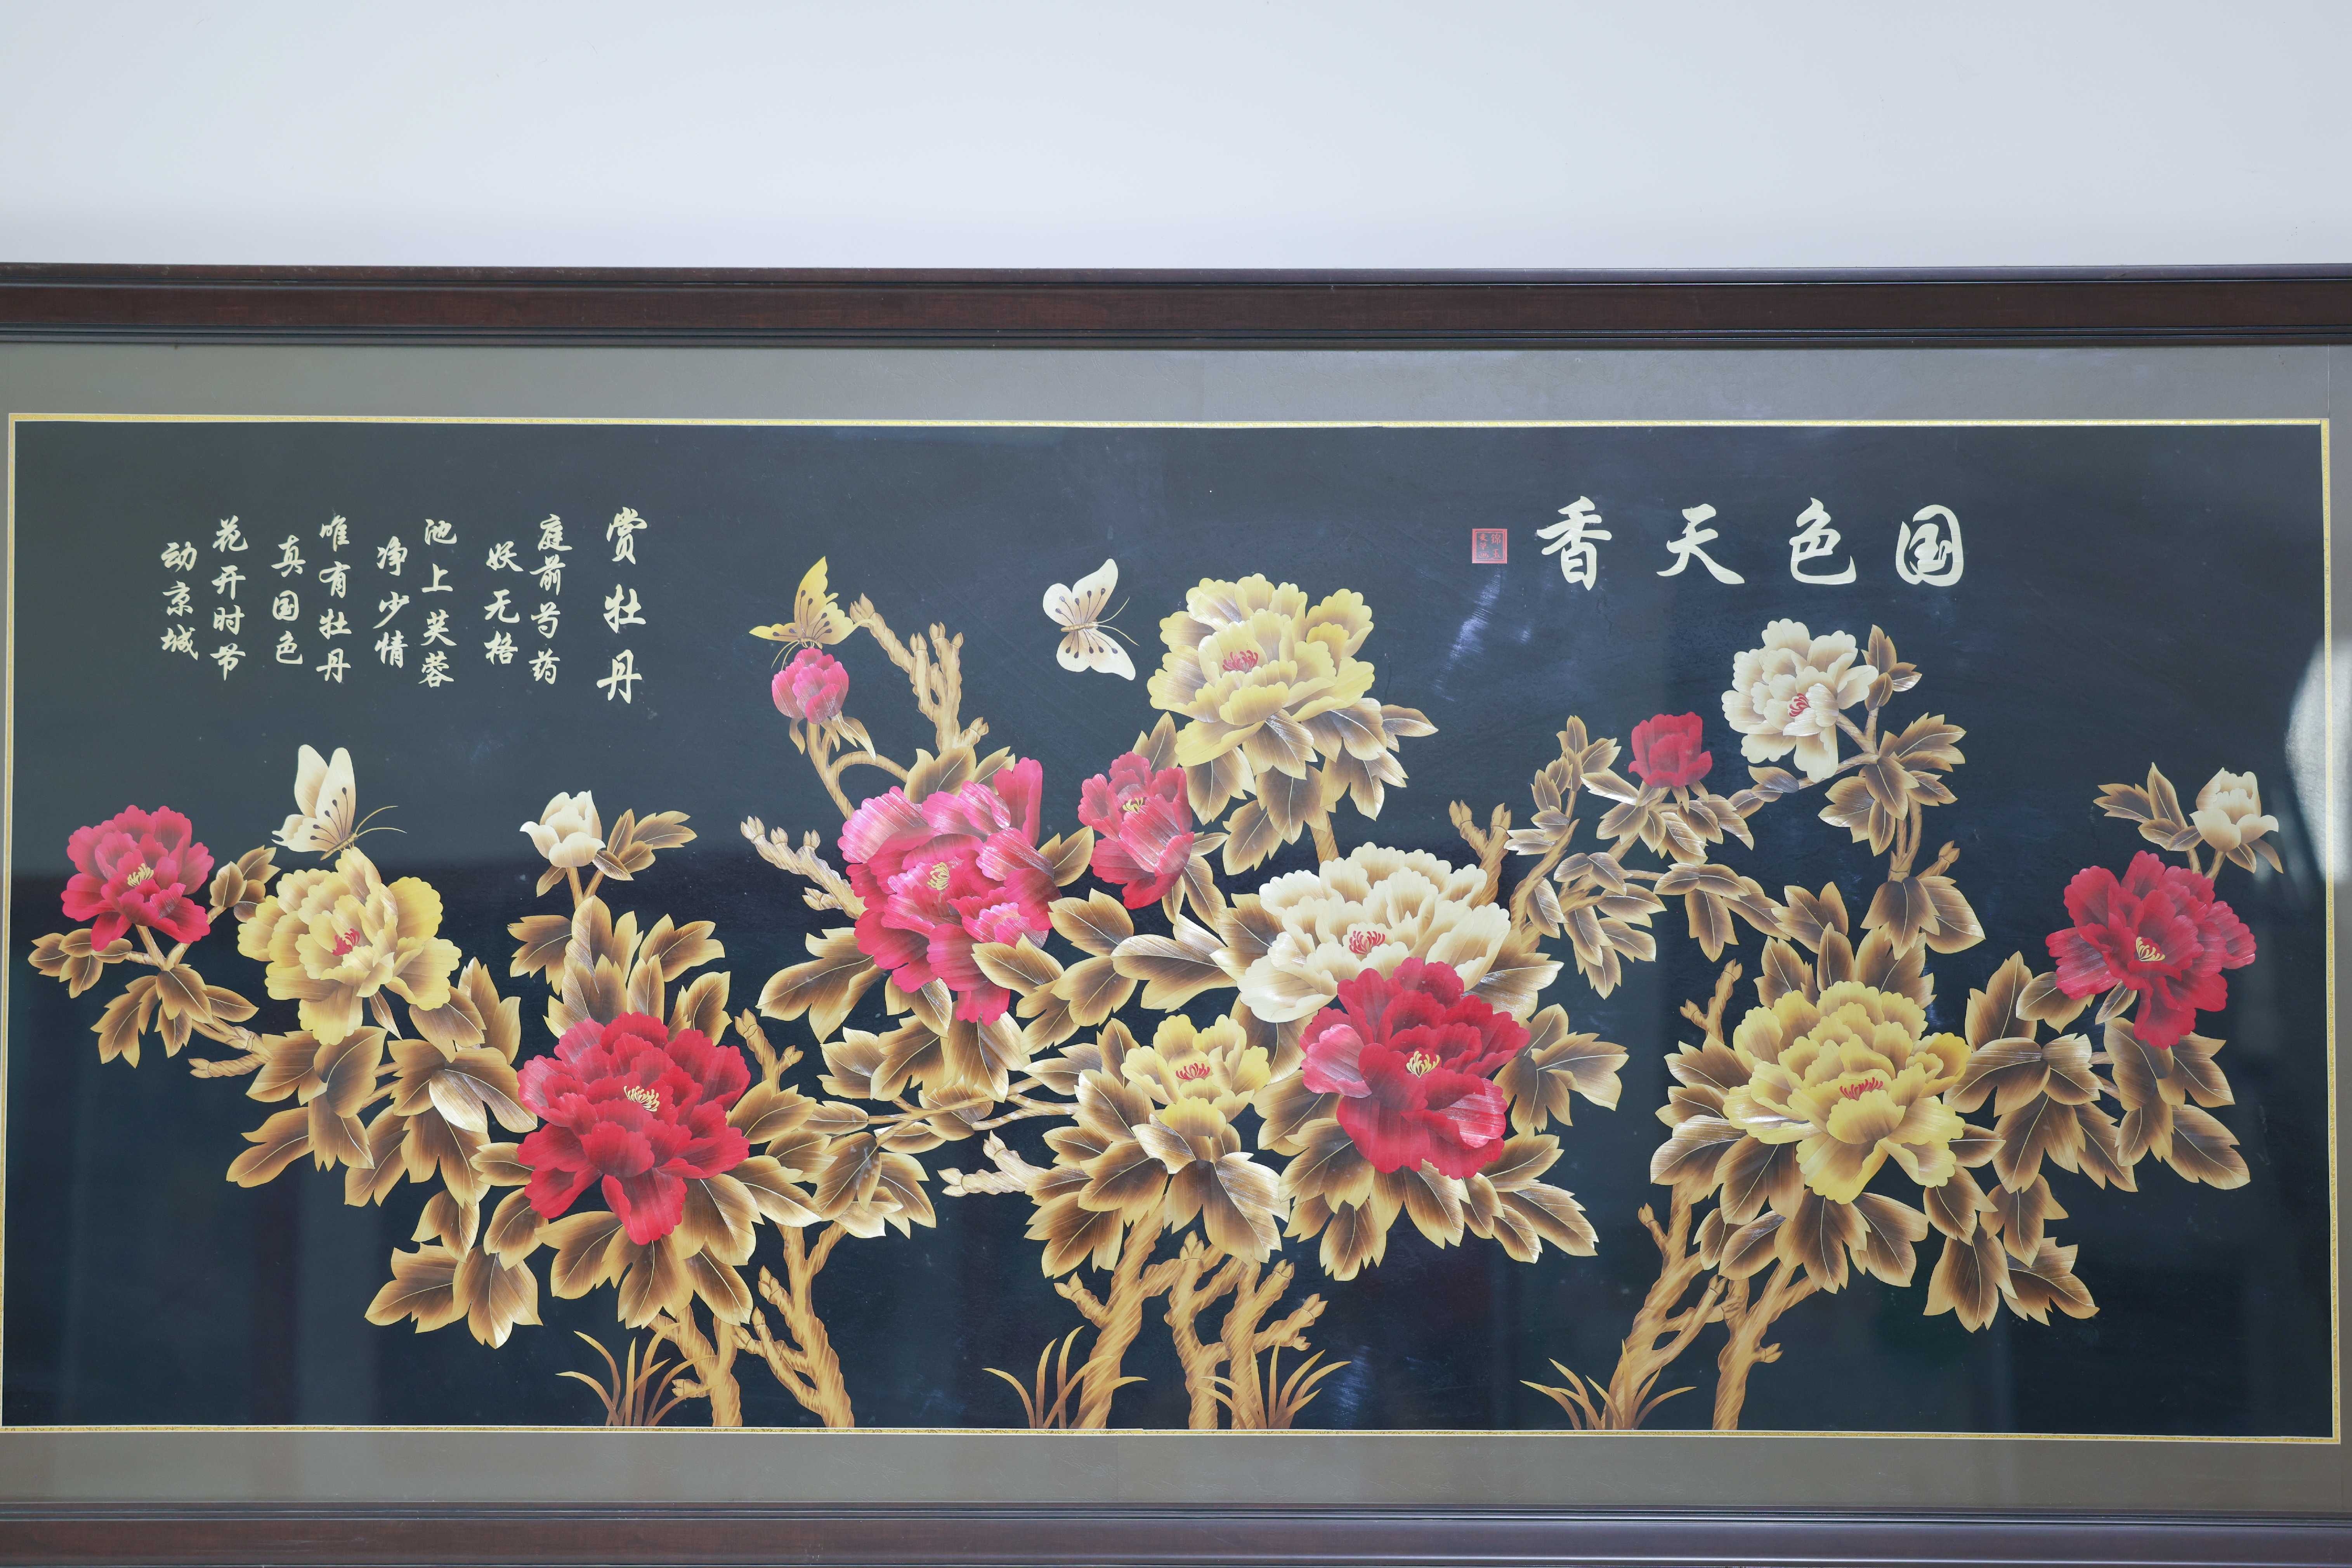 国色天香
赏牡丹
庭前芍药
妖无格
池上芙蓉
净少情
唯有牡丹
真国色
花开时节
动京城